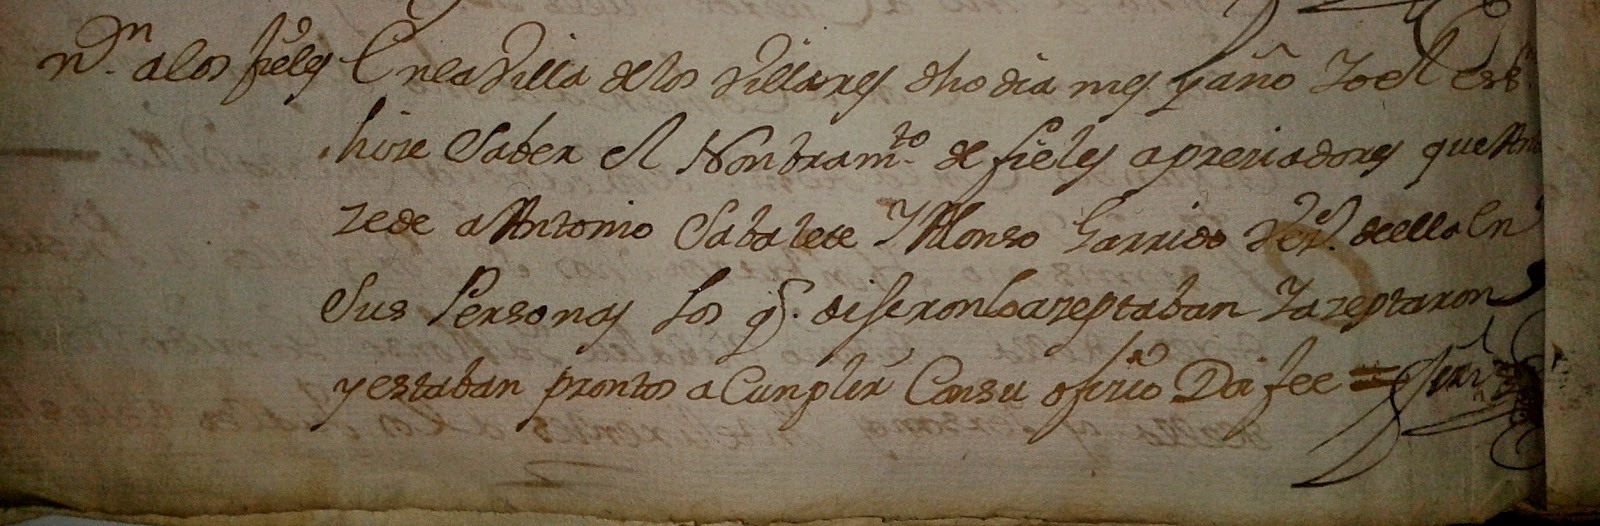 n.on a los fieles En la Villa de los Villares dho dia mes y año Yo el esno.
hize Saber el Nombramto. de fieles apreziadores que Ante
zede a Antonio Sabalete Y Alonso Garrido vezs. de ella En
Sus Personas los q.e dijeron lo azeptaban Y azeptaron
y estaban prontos a Cunplir Con su ofizio Doi fee =